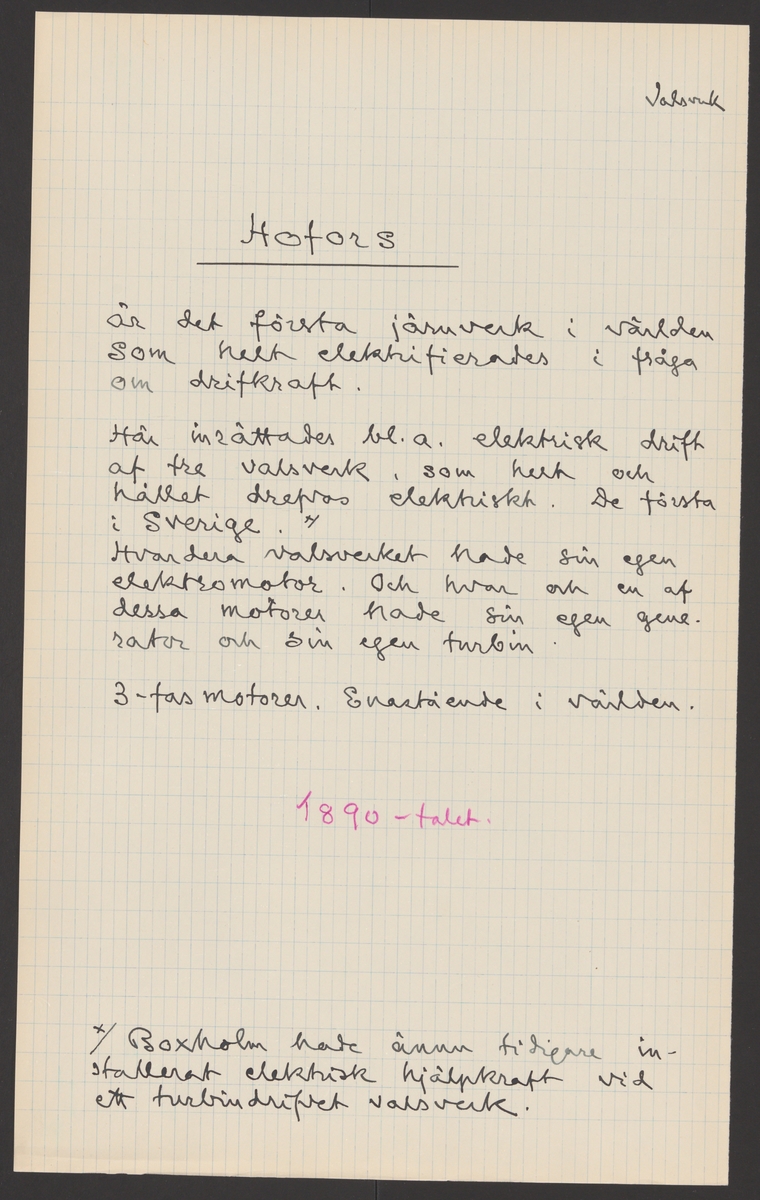 Valsverk
Hofors
är det första järnverk i världen
som helt elektrifierades i fråga
om drifkraft.
Här inrättades bl.a. elektrisk drift
af tre valsverk, som helt och
hållet drefvos elektriskt. De första
i Sverige. x/
Hvardera valsverket hade sin egen
elektromotor. Och hvar och en af
dessa motorer hade sin egen gene-
rator och sin egen turbin.
3-fas motorer. Enastående i världen.
1890-talet.
x/ Boxholm hade ännu tidigare in-
stallerat elektrisk hjälpkraft vid
ett turbindrifvet valsverk.